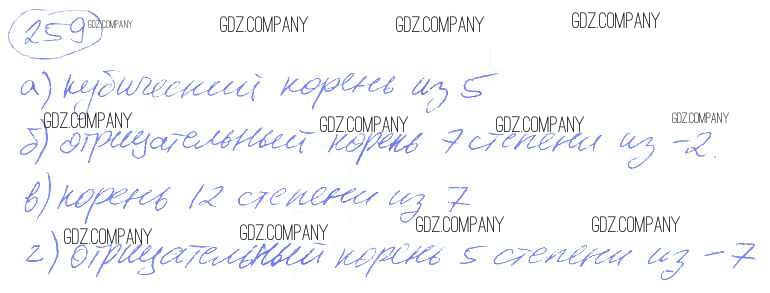 259 GDZ.COMPANY GDZ.COMPANY GDZ.COMPANY GDZ.COMPANY
а) кубический корень из 5
GDZ.COMPANY GDZ.COMPANY GDZ.COMPANY GDZ.COMPANY
б) отрицательный корень 7 степени из -2.
в) корень 12 степени из 7
GDZ.COMPANY GDZ.COMPANY GDZ.COMPANY GDZ.COMPANY
г) отрицательный корень 5 степени из -7